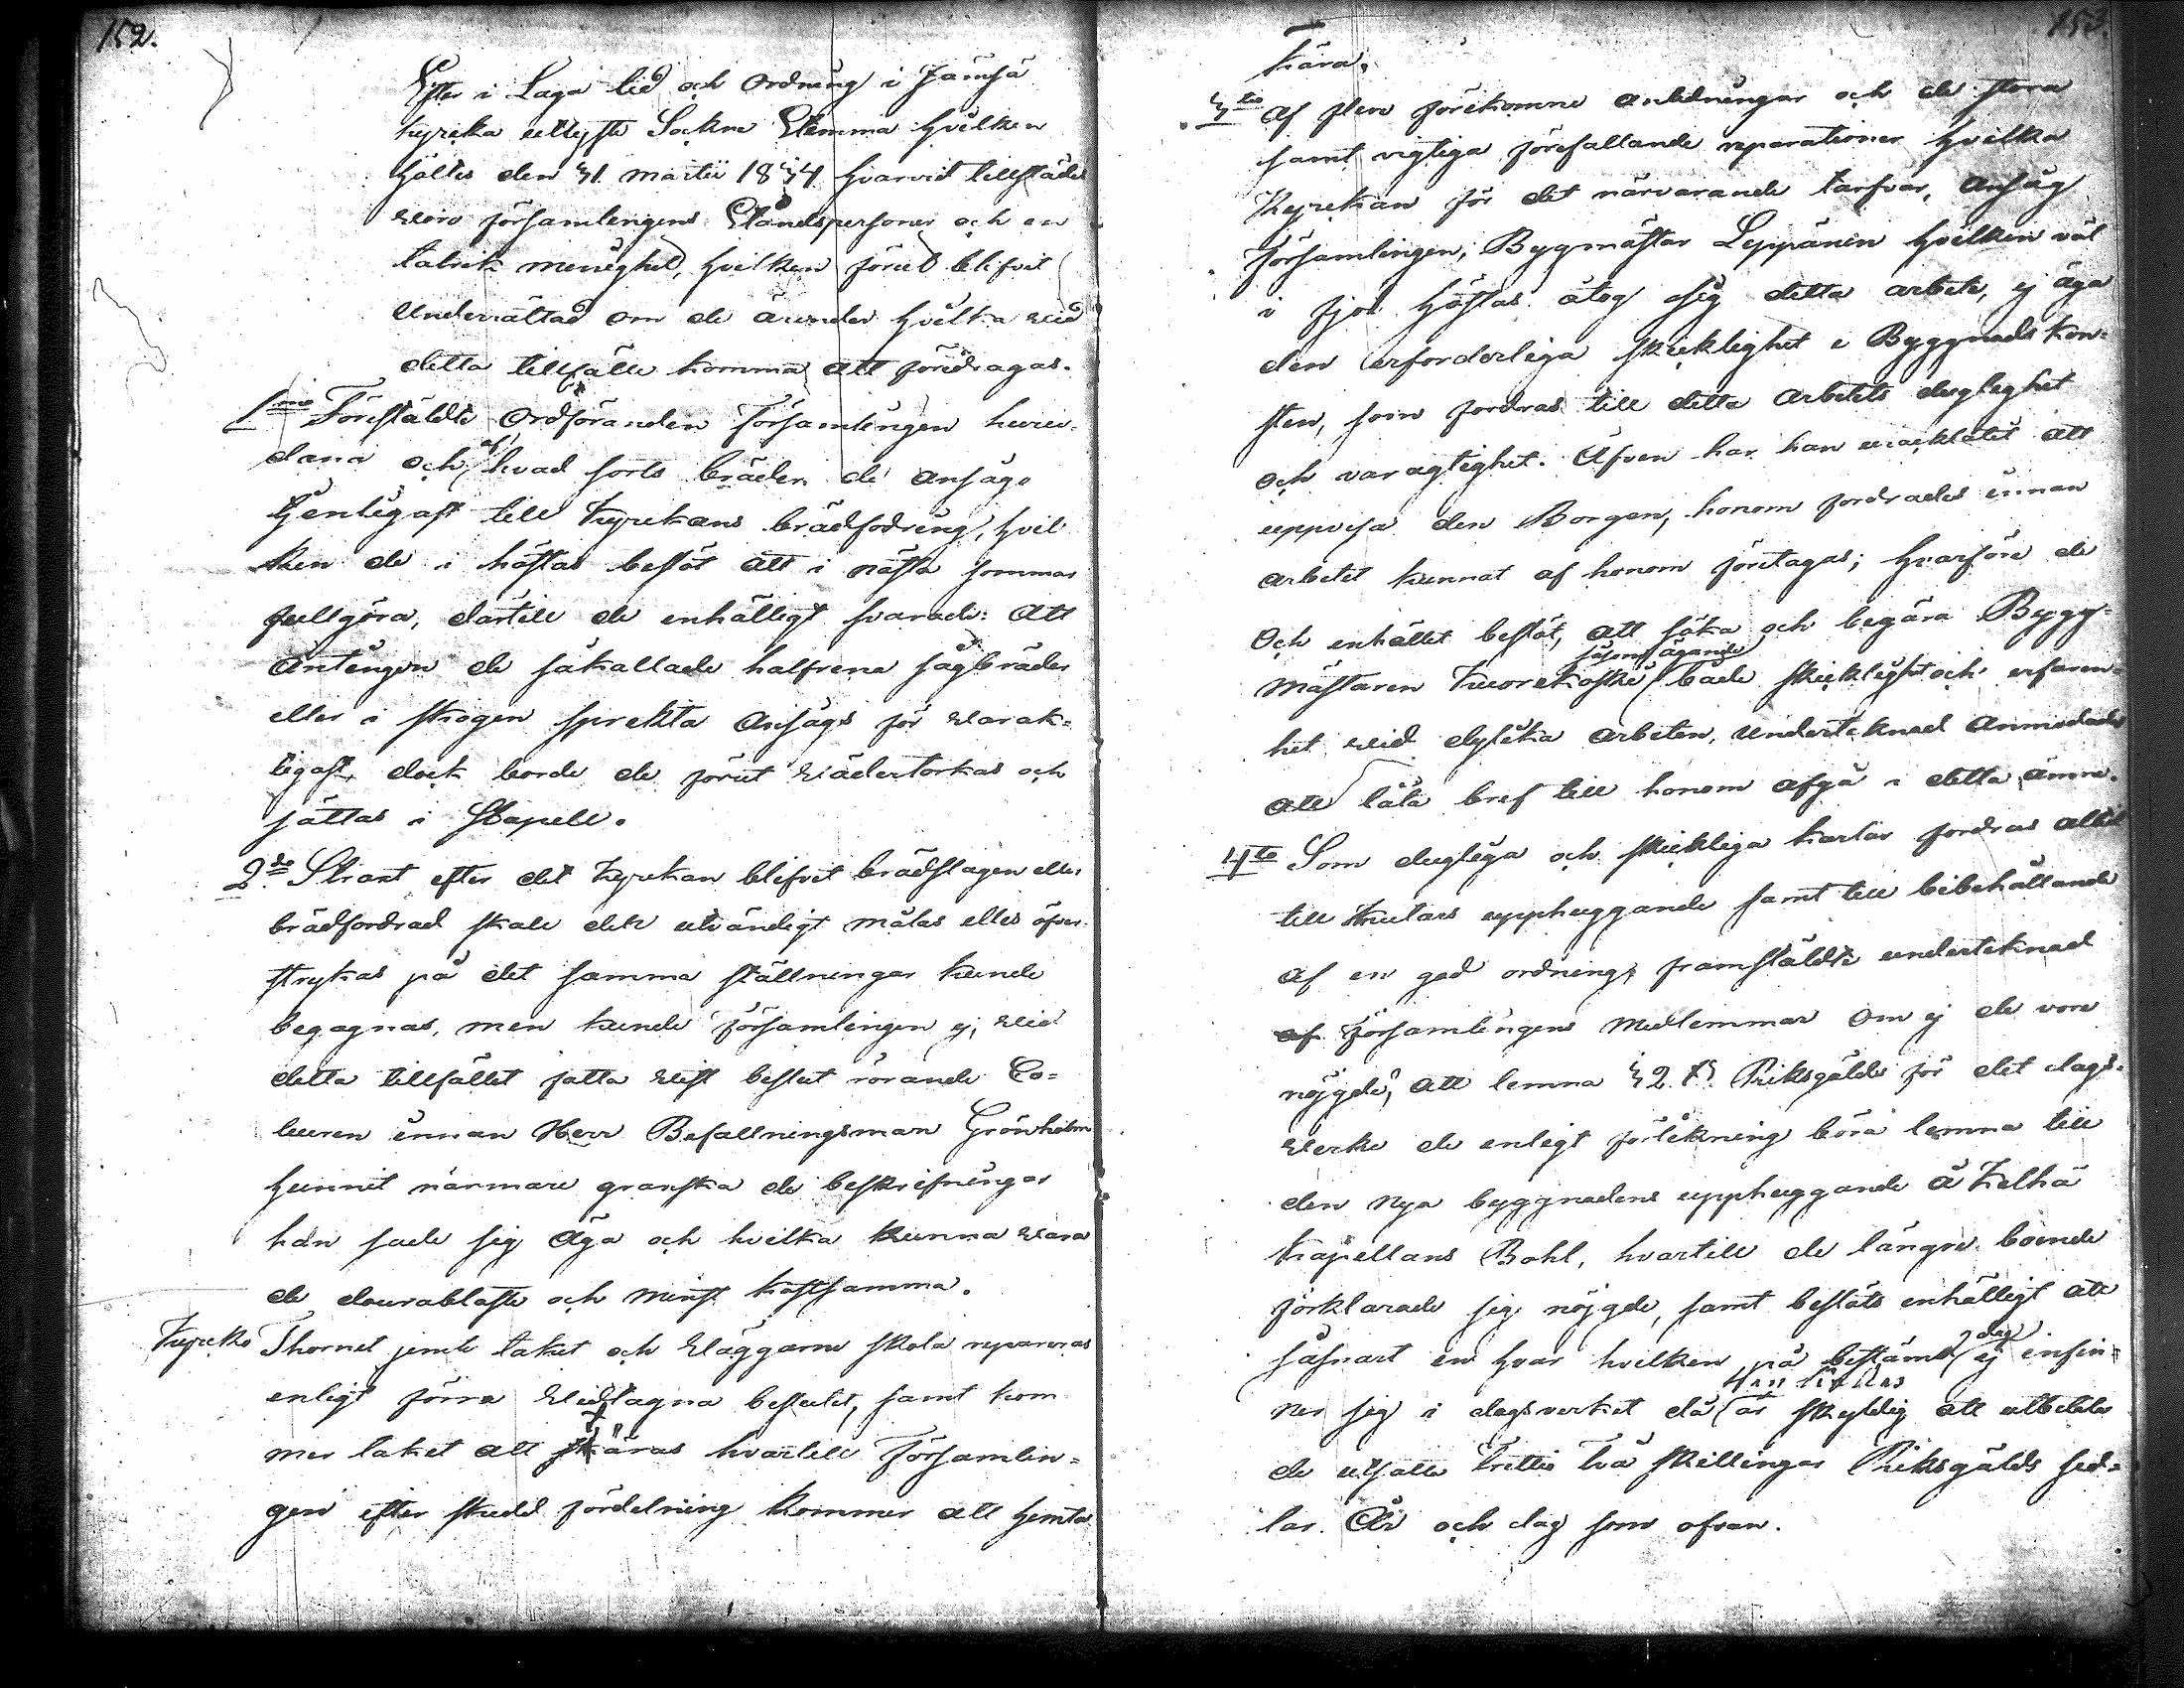 152.
Efter i Laga tid och Ordning i Jämsä
kyrcka utlyste Sockne Stemma hvilken
hölts den 31 Martii 1834 hvarvid tillstädes
woro församlingens Ståndspersoner och en
talrik menighet, hvilken förut blifvit
underrättad om de ärender hvilka wid
detta tillfälle komma att föredragas.
1mo Förestäldte Ordföranden Församlingen huru-
dana och af hvad sorts bräder de ansågo
tjenligast till kyrckans brädfodring, hvil
ken de i höstas beslöt att i nästa sommar
fullgöra, därtill de enhälligt svarade: Att
antingen de såkallade halfrena sågbräder
eller i skogen sprekta ansågs för warak-
tigast, dock borde de förut wädertorkas och
sättas i Stapell.
2do Strant efter det kyrckan blifvit brädslagen eller
brädfordrad skall den utvändigt målas eller öfver-
strykas på det samma ställningar kunde
begagnas, men kunde församlingen ej, wid
detta tillfället fatta wist beslut rörande Co-
leuren innan Herr Befallningsman Grönholm
hunnit närmare granska de beskrifningar
han sade sig äga och hvilka kunna wara
de dourablaste och minst kostsamma.
Kyrcko Thornet jemte taket och wäggarne skola repareras
enligt förra widtagna beslutet, samt kom
mer taket att tjäras hvartill Församlin-
gen efter skedd fördelning kommer att hemta
153.
tjära.
3tio Af flere förekomne anledningar och de stora
samt vigtiga förefallande reparationer hvilka
Kyrckan för det närvarande tarfvar, ansåg
Församlingen, Bygmästar Leppänen hvilken väl
i fjol höstas åtog sig detta arbete, ej äga
den erforderliga skicklighet i Byggnads kon-
sten, som fordras till detta arbetets duglighet
och varagtighet. Äfven har han uraklåtit att
uppvisa den Borgen, honom fordrades innan
arbetet kunnat af honom företagas; hvarföre de
Och enhället beslöt, att söka och begära Bygg-
såsom ägande
mästaren Kuorekoski både skicklighet och erfaren-
het wid dylika arbeten, undertecknad anmodades
att låta bref till honom afgå i detta ämne.
4to Som dugliga och skickliga karlar fordras alltid
till knutars upphuggande samt till bibehållande
af en god ordning, framstäldte undertecknad
af församlingens Medlemmar om ej de vore
nöjgde, att lemna 32 s. Riksgälds för det dags-
werke de enligt förtekning böra lemna till
den nya byggnadens upphuggande å Kelhä
kapellans Bohl, hvartill de längre boende
förklarade sig nöjgde, samt beslöts enhälligt att
dag
såsnart en hvar hvilken på bestämd ej infin-
ner sig i dagsverket då är skyldig att utbetala
de utsatte Trettio Två Skillingar Riksgälds sed-
lar. År och dag som ofvan.